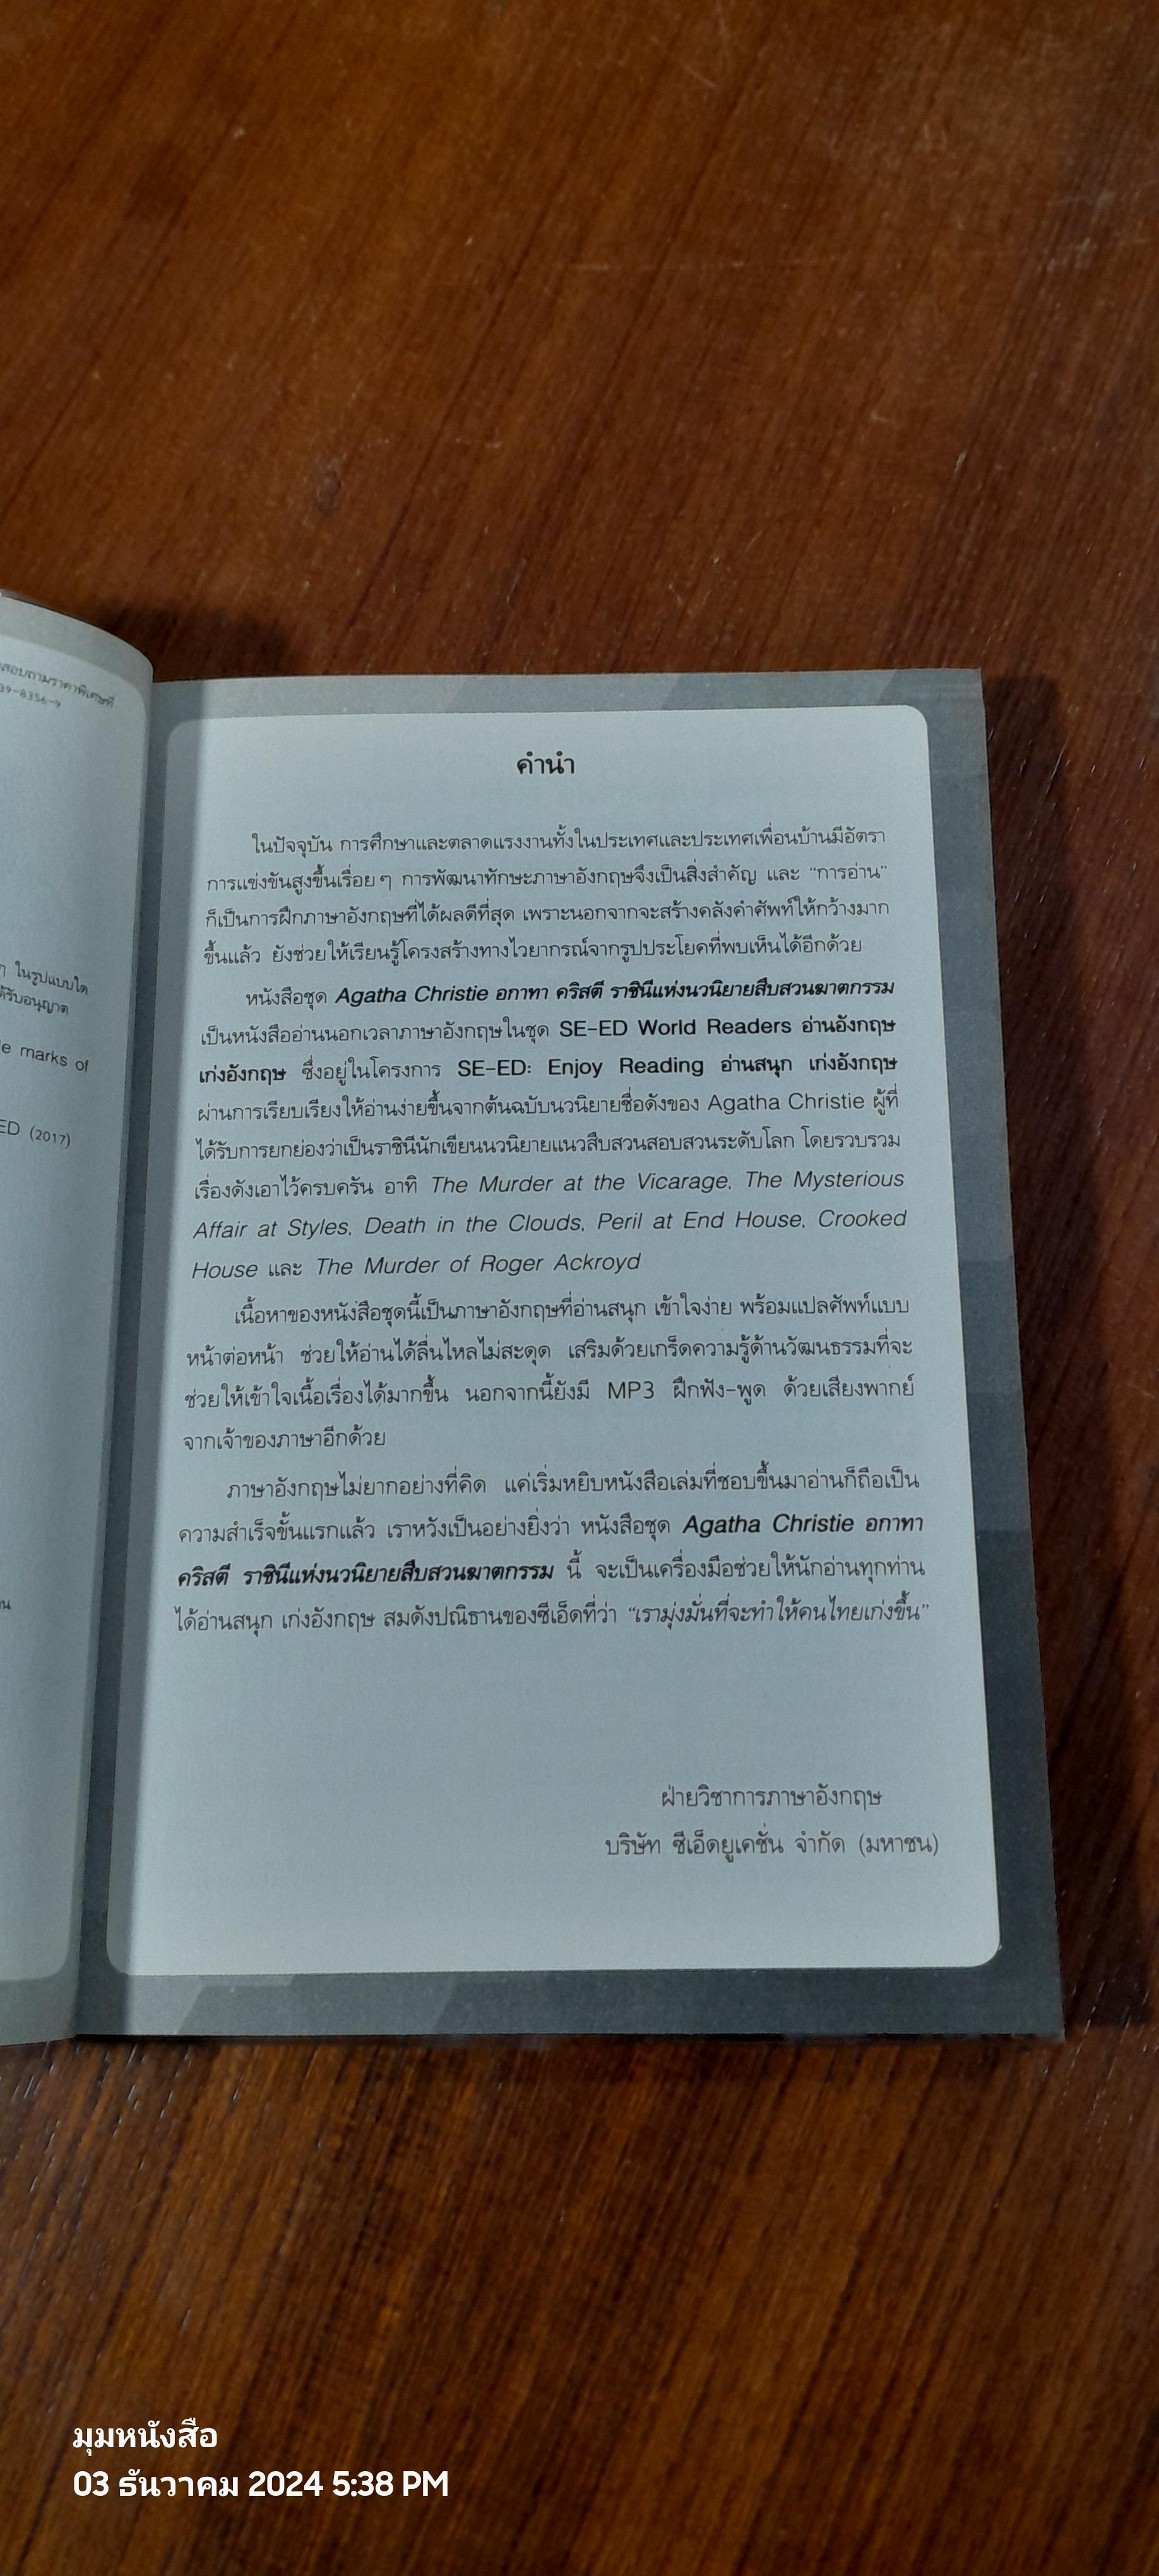 สอบถามราคาพิเศษที่
39-8356-9
ในรูปแบบใด
ได้รับอนุญาต
marks of
ED (2017)
คำนำ
ในปัจจุบัน การศึกษาและตลาดแรงงานทั้งในประเทศและประเทศเพื่อนบ้านมีอัตรา
การแข่งขันสูงขึ้นเรื่อยๆ การพัฒนาทักษะภาษาอังกฤษจึงเป็นสิ่งสำคัญ และ “การอ่าน”
ก็เป็นการฝึกภาษาอังกฤษที่ได้ผลดีที่สุด เพราะนอกจากจะสร้างคลังคำศัพท์ให้กว้างมาก
ขึ้นแล้ว ยังช่วยให้เรียนรู้โครงสร้างทางไวยากรณ์จากรูปประโยคที่พบเห็นได้อีกด้วย
หนังสือชุด Agatha Christie อกาทา คริสตี ราชินีแห่งนวนิยายสืบสวนฆาตกรรม
เป็นหนังสืออ่านนอกเวลาภาษาอังกฤษในชุด SE-ED World Readers อ่านอังกฤษ
เก่งอังกฤษ ซึ่งอยู่ในโครงการ SE-ED: Enjoy Reading อ่านสนุก เก่งอังกฤษ
ผ่านการเรียบเรียงให้อ่านง่ายขึ้นจากต้นฉบับนวนิยายชื่อดังของ Agatha Christie ผู้ที่
ได้รับการยกย่องว่าเป็นราชินีนักเขียนนวนิยายแนวสืบสวนสอบสวนระดับโลก โดยรวบรวม
เรื่องดังเอาไว้ครบครัน อาทิ The Murder at the Vicarage, The Mysterious
Affair at Styles, Death in the Clouds, Peril at End House, Crooked
House และ The Murder of Roger Ackroyd
เนื้อหาของหนังสือชุดนี้เป็นภาษาอังกฤษที่อ่านสนุก เข้าใจง่าย พร้อมแปลศัพท์แบบ
หน้าต่อหน้า ช่วยให้อ่านได้ลื่นไหลไม่สะดุด เสริมด้วยเกร็ดความรู้ด้านวัฒนธรรมที่จะ
ช่วยให้เข้าใจเนื้อเรื่องได้มากขึ้น นอกจากนี้ยังมี MP3 ฝึกฟัง-พูด ด้วยเสียงพากย์
จากเจ้าของภาษาอีกด้วย
ภาษาอังกฤษไม่ยากอย่างที่คิด แค่เริ่มหยิบหนังสือเล่มที่ชอบขึ้นมาอ่านก็ถือเป็น
ความสำเร็จขั้นแรกแล้ว เราหวังเป็นอย่างยิ่งว่า หนังสือชุด Agatha Christie อกาทา
คริสตี ราชินีแห่งนวนิยายสืบสวนฆาตกรรม นี้ จะเป็นเครื่องมือช่วยให้นักอ่านทุกท่าน
ได้อ่านสนุก เก่งอังกฤษ สมดังปณิธานของซีเอ็ดที่ว่า “เรามุ่งมั่นที่จะทำให้คนไทยเก่งขึ้น”
ฝ่ายวิชาการภาษาอังกฤษ
บริษัท ซีเอ็ดยูเคชั่น จำกัด (มหาชน)
มุมหนังสือ
03 ธันวาคม 2024 5:38 PM